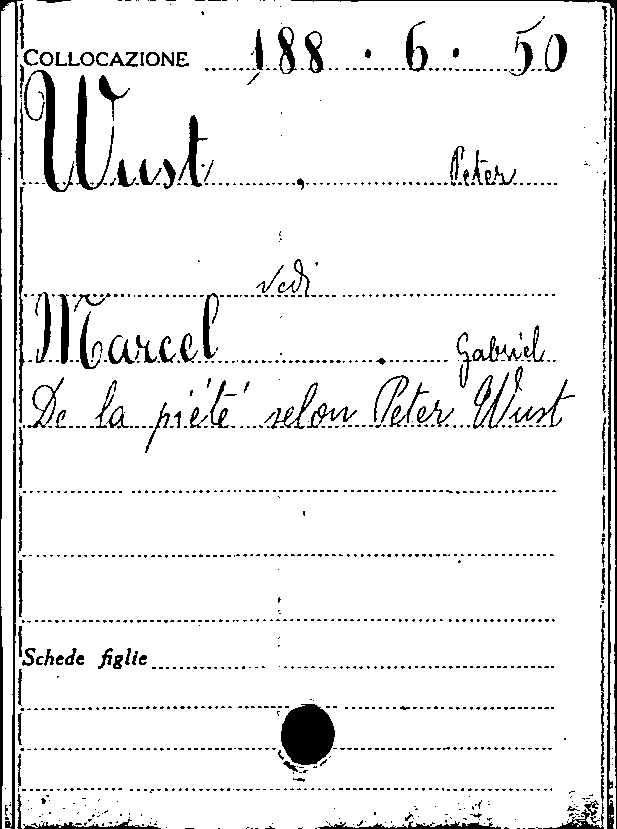 COLLOCAZIONE 188 . 6 . 50
Wust , Peter
vedi
Marcel . Gabriel
De la piété selon Peter Wust
Schede figlie